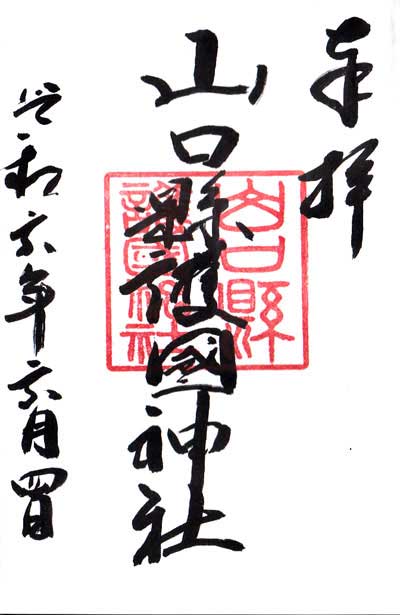 奉拝
山口縣護國神社
山口縣
護國神社
令和六年六月四日